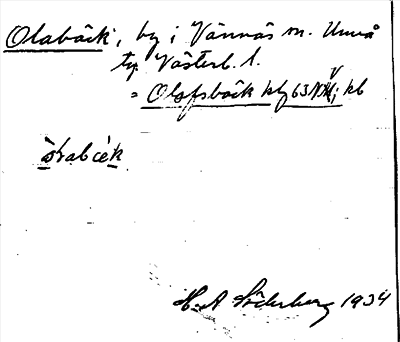 Olabäck, by i Vännäs sn. Umeå
tg. Västerb. l.
= Olofsbäck kbl 63 NV; kb
H. A. Söderberg 1934